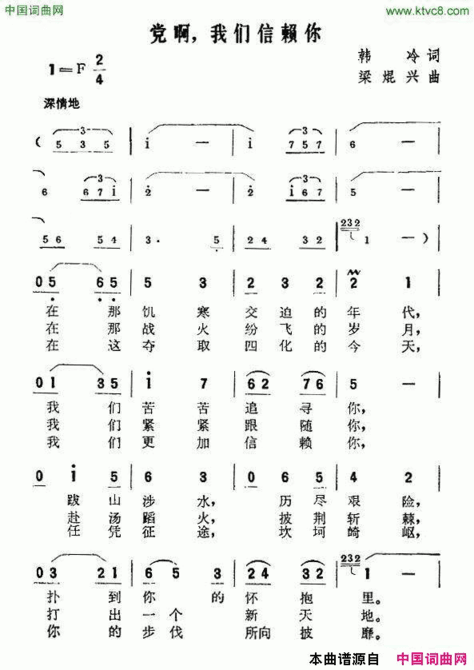 中国词曲网
www.ktvc8.com
党啊,我们信赖你
1=F 2/4
韩 冷 词
梁焜兴 曲
深情地
( 5 3 5 | i — | i 7 5 7 | 6 —
6 6 7 i | 2 — | 2 i 6 7 | 5 —
5 6 5 4 | 3· 5 | 2 4 3 2 | 232 1 — )
0 5 6 5 | 5 3 | 2 3 2 | 2 1
在 那 饥 寒 交 迫 的 年 代,
在 那 战 火 纷 飞 的 岁 月,
在 这 夺 取 四 化 的 今 天,
0 1 3 5 | i 7 | 6 2 7 6 | 5 —
我 们 苦 苦 追 寻 你,
我 们 紧 紧 跟 随 你,
我 们 更 加 信 赖 你,
0 i 5 | 6 3 | 0 6 5 | 4 2
跋 山 涉 水, 历 尽 艰 险,
赴 汤 蹈 火, 披 荆 斩 棘,
任 凭 征 途, 坎 坷 崎 岖,
0 3 2 1 | 6 5 | 2 4 3 2 | 232 1 —
扑 到 你 的 怀 抱 里。
打 出 一 个 新 天 地。
你 的 步 伐 所向 披 靡。
本曲谱源自 中国词曲网